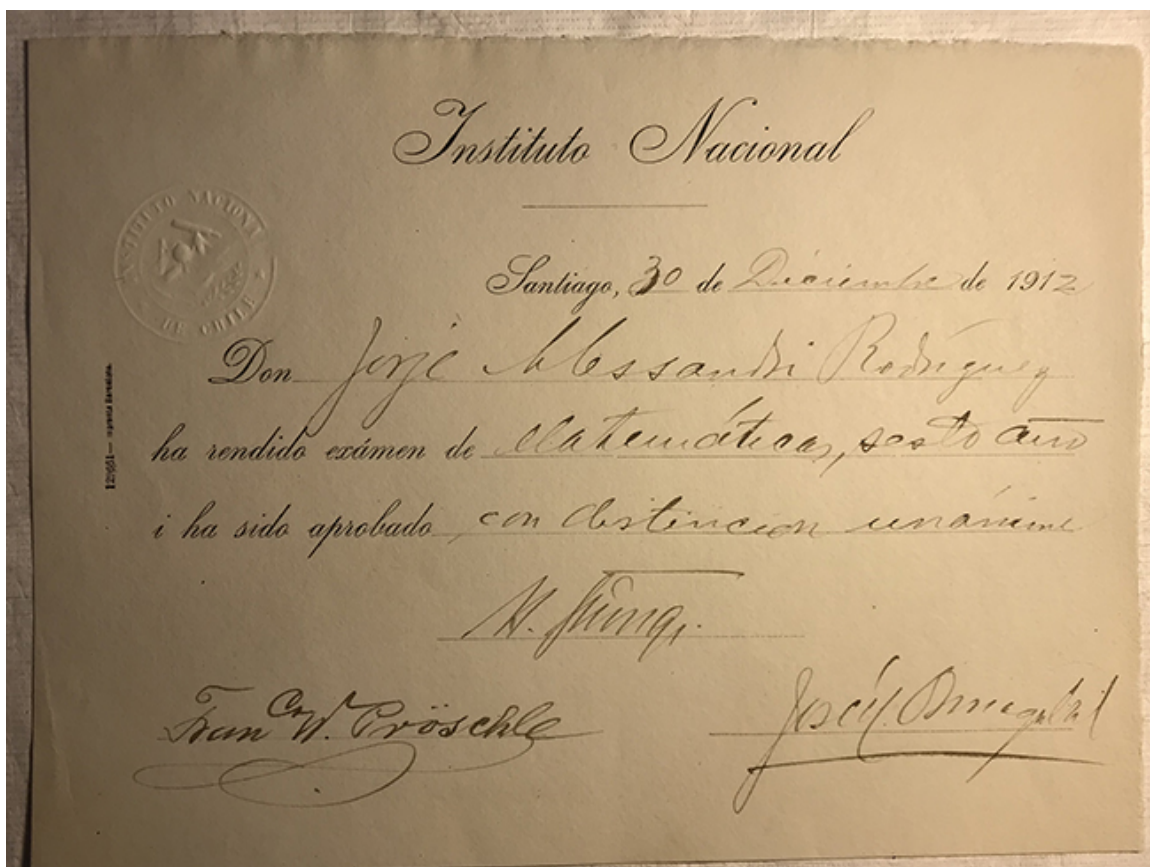 Instituto Nacional
INSTITUTO NACIONAL
DE CHILE
Santiago, 30 de Diciembre de 1912
Don Jorje Alessandri Rodríguez
ha rendido exámen de Matemáticas, sesto año
i ha sido aprobado, con distincion unánime
Fran.co W. Pröschle